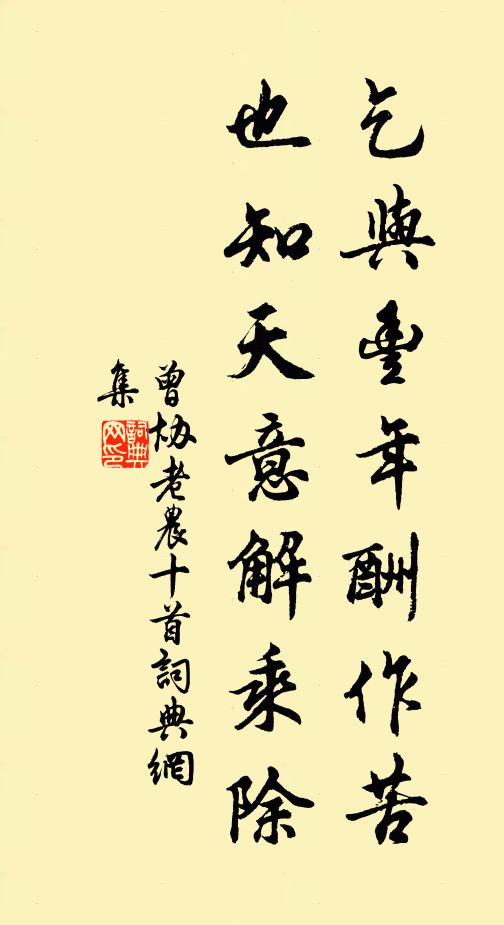 乞與豐年酬作苦
也知天意解乘除
曾協老農十首詞典網
集
詞典
网印